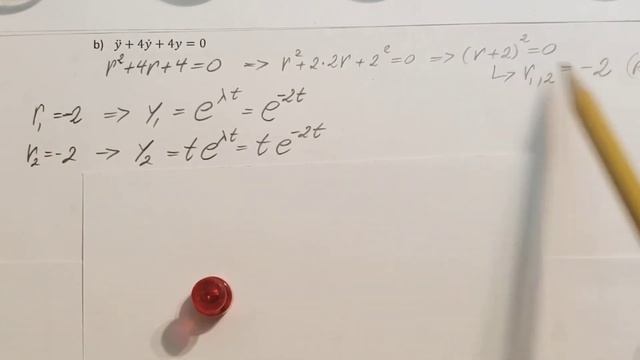 b) ÿ + 4ẏ + 4y = 0
r² + 4r + 4 = 0 => r² + 2·2r + 2² = 0 => (r+2)² = 0
↳ r₁,₂ = -2
r₁ = -2 => y₁ = e^λt = e^-2t
r₂ = -2 -> y₂ = te^λt = te^-2t